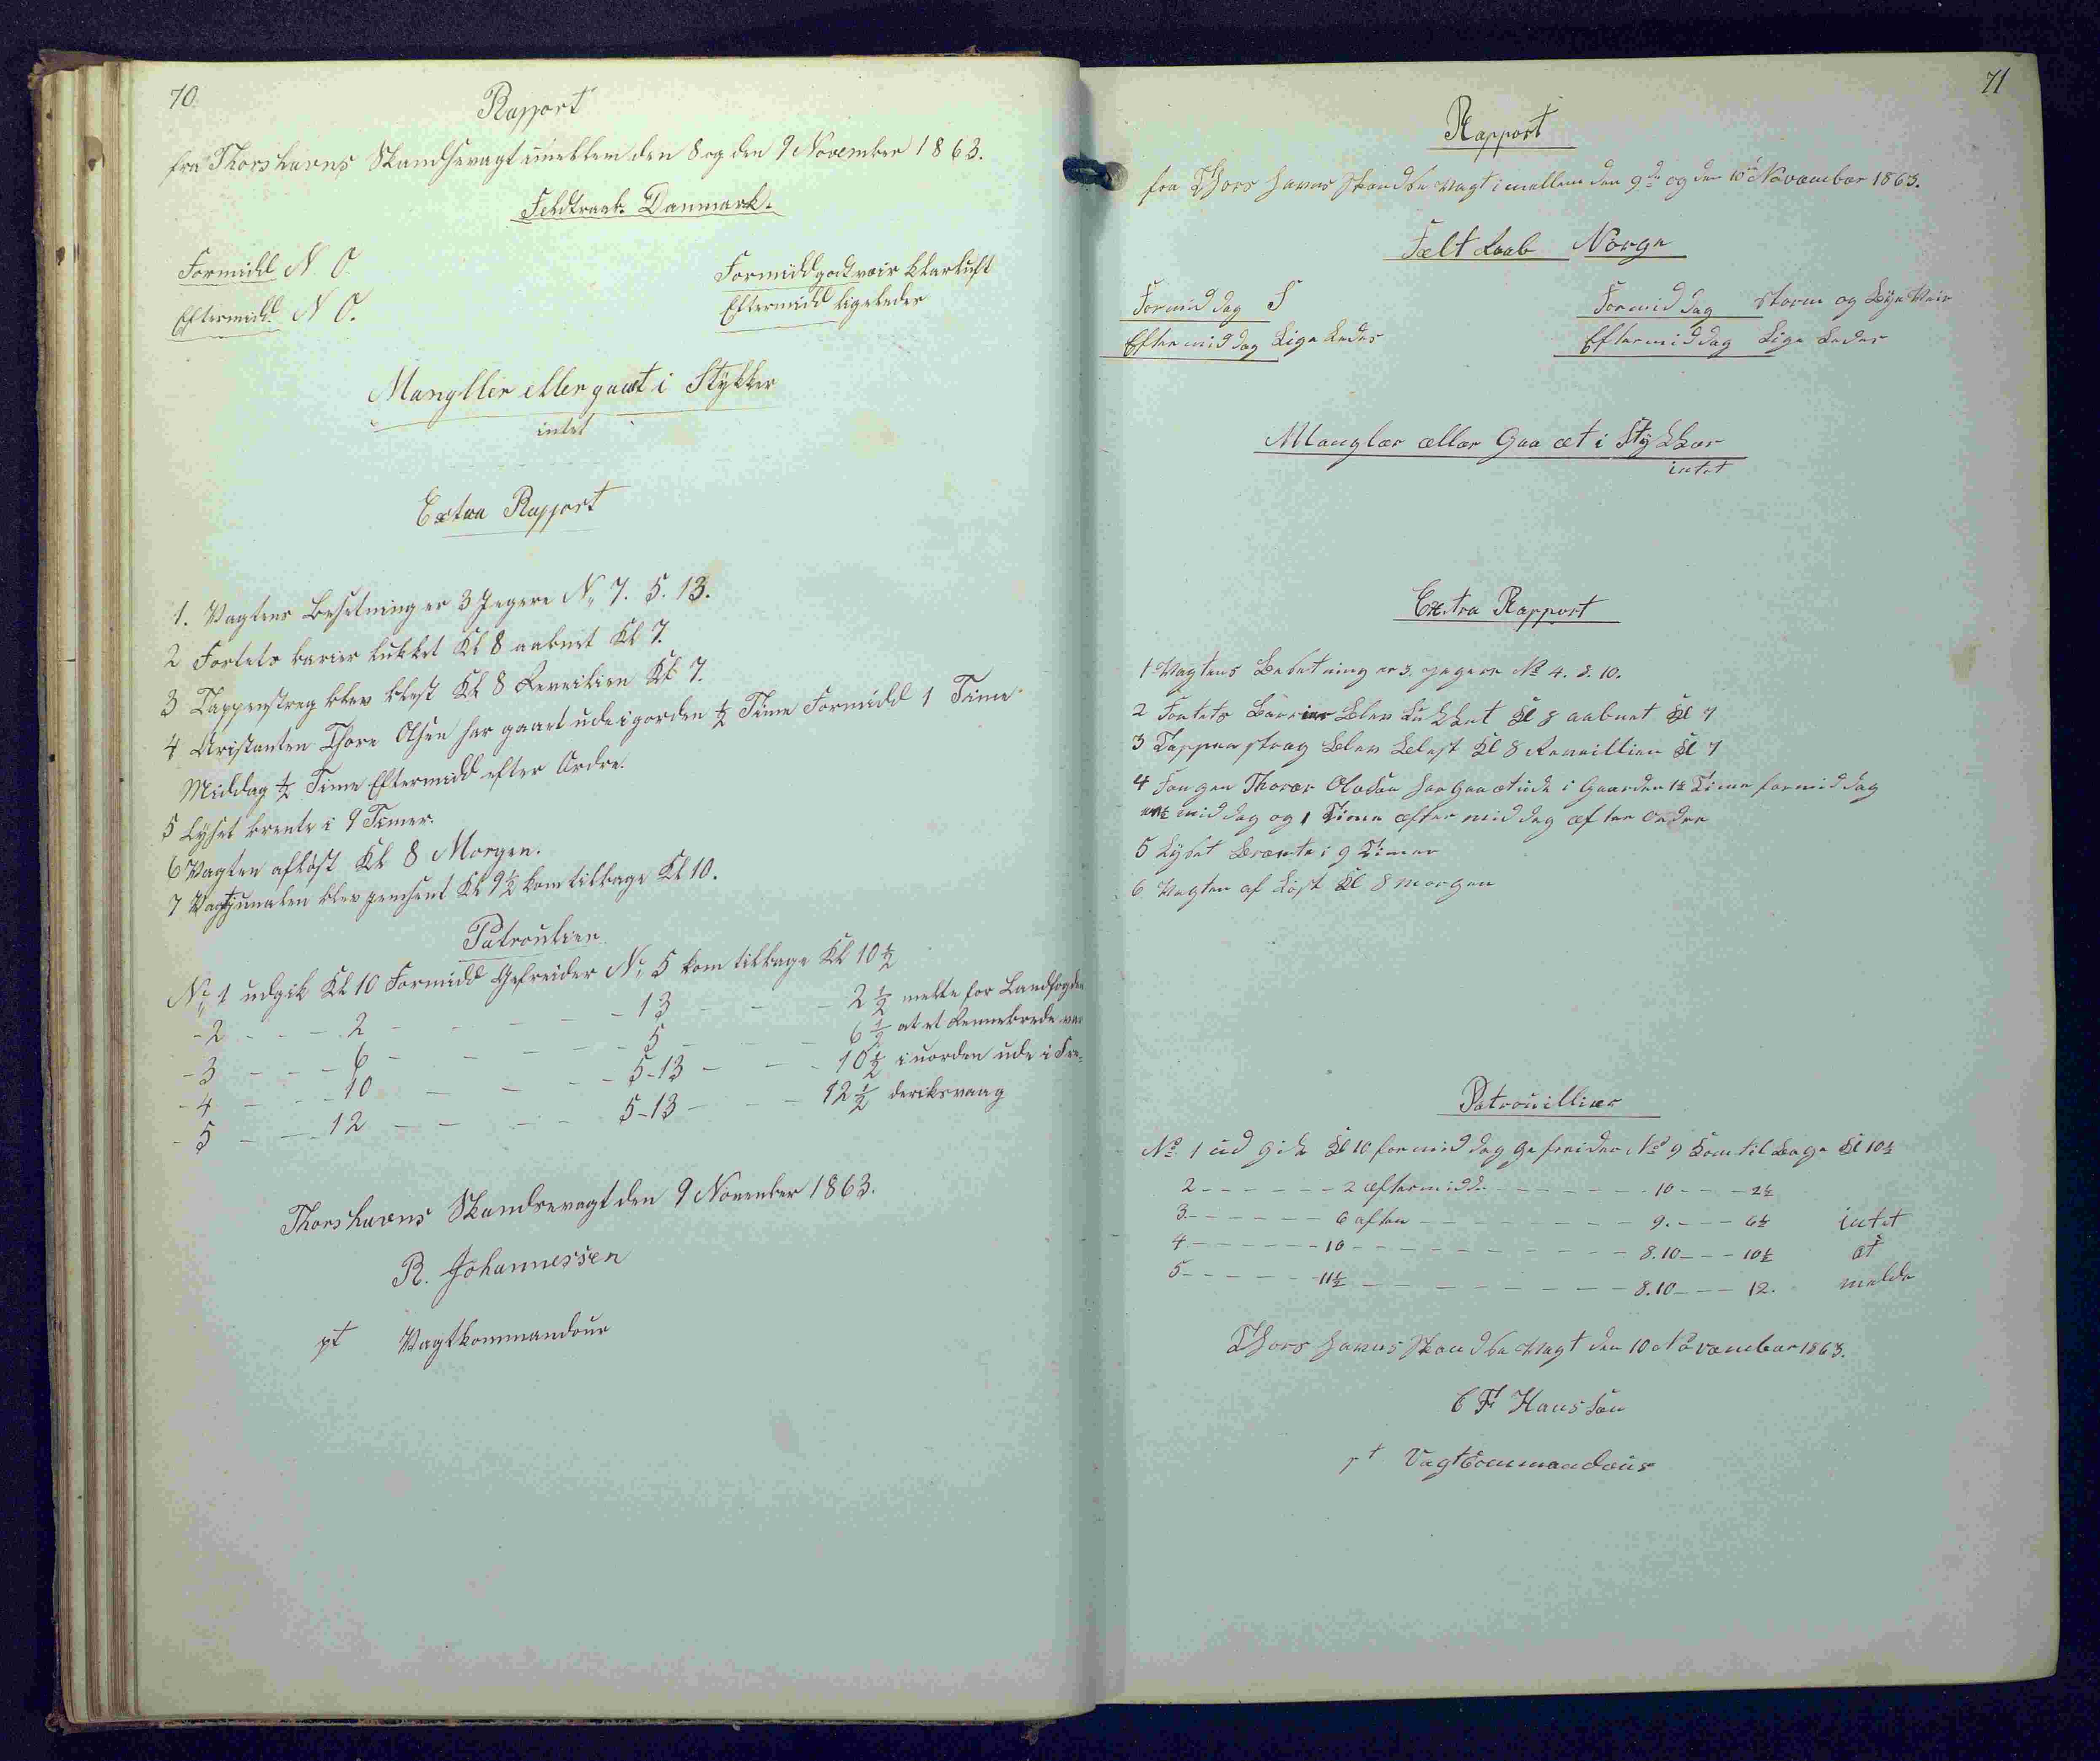 70
Rapport
fra Thorshavns Skandsevagt imellem den 8 og den 9 November 1863.
Feldtraab. Danmark.
Formidd N. O. Formidd godt veir klarluft
Eftermidd. N O. Eftermidd ligeledes
Mangller eller gaaet i Stykker
intet
Extra Rapport
1. Vagtens Besetning er 3 Jegere No 7. 5. 13.
2 Fortets barier lukket Kl 8 aabnet Kl 7.
3 Tappenstreg blev blest Kl 8 Reveilien Kl 7.
4 Aristanten Thore Olsen har gaaet ude i gorden ½ Time Formidd 1 Time
Middag ½ Time Eftermidd efter Ordre.
5 Lyset brente i 9 Timer.
6 Vagten afløst Kl 8 Morgen.
7 blev Kl 9½ kom tilbage Kl 10.
Patroulier
No 1 udgik Kl 10 Formidd Gefreider No 5 kom tilbage Kl 10½
- 2 - - - 2 - - - - 13 - - - 2½ melte for Landfogden
- 3 - - - 6 - - - - 5 - - - 6½ at et Rennebrede var
- 4 - - - 10 - - - 5-13 - - - 10½ i uorden ude i Fre-
- 5 - - - 12 - - - 5-13 - - - 12½ deriksvaag
Thorshavns Skandsevagt den 9 November 1863.
R. Johannessen
pt Vagtkommandeur
71
Rapport
fra Thors havns Skandse vagt imellem den 9de og den 10de November 1863.
Felt Raab Norge
Formiddag S Formiddag storm og Veir
Eftermiddag Lige Ledes Eftermiddag Lige Ledes
Manglær ællær Gaaæt i Stykkær
intet
Extra Rapport
1 Vagtens Besetning er 3. jegere No 4. 8. 10.
2 Fortets Barrier Blev Lukket Kl 8 aabnet Kl 7
3 Tappenstræg blev blest Kl 8 Reveillien Kl 7
4 Fangen Thorer Olædsen har Gaaæt ude i Gaarden 1½ Time formiddag
middag og 1 Time æftermiddag æfter Ordre
5 Lyset Brænte i 9 Timer
6 Vagten af Løst Kl 8 morgen
Patrouillier
No 1 ud gik Kl 10 formiddag gefreider No 9 kom tilbage Kl 10½
2 - - - - - 2 æftermidd. - - - - - 10 - - - 2½
3 - - - - - 6 aften - - - - - 9. - - - 6½ intet
4 - - - - - 10 - - - - - 8.10 - - - 10½ at
5 - - - - - 11½ - - - - - 8.10 - - - 12. melde
Thors havns Skandse Vagt den 10 November 1863.
C F Hanssen
pt VagtCommandeur